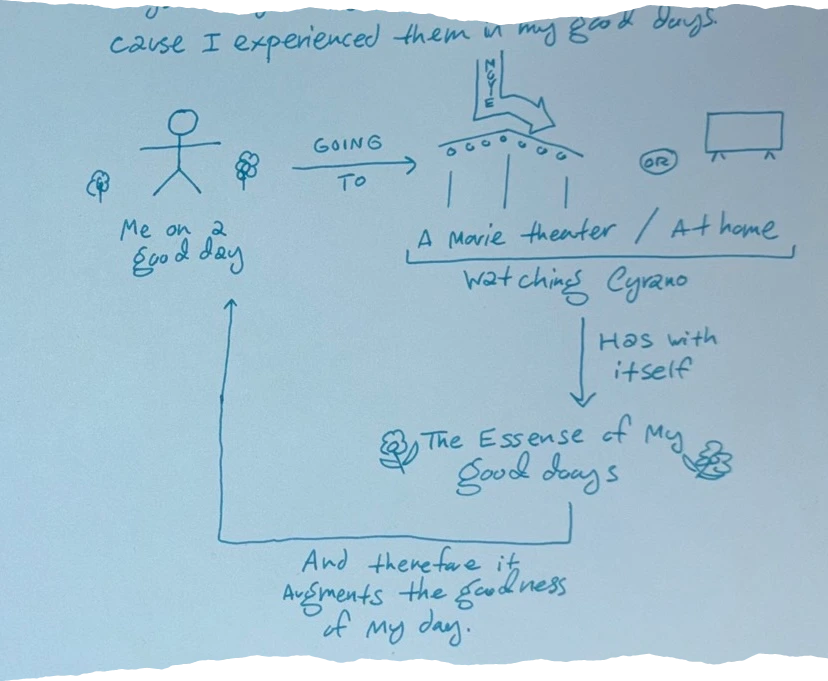 cause I experienced them in my good days.
MOVIE
GOING
TO
OR
Me on a
good day
A Movie theater / At home
Watching Cyrano
Has with
itself
The Essense of My
good days
And therefore it
Augments the goodness
of My day.